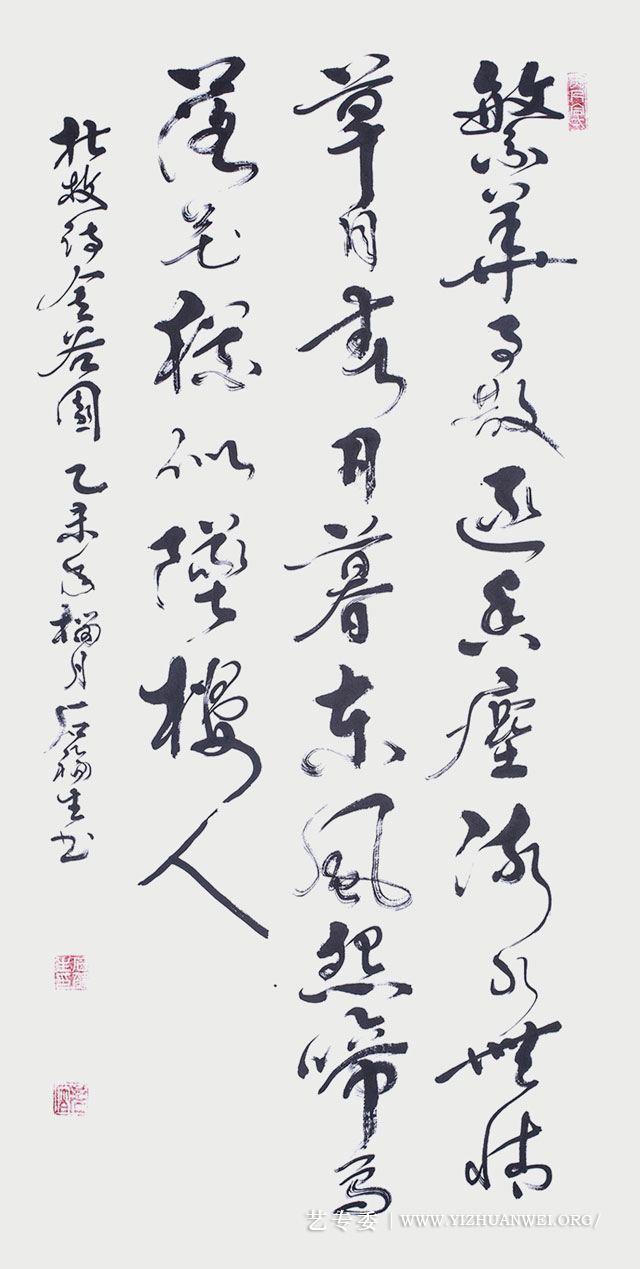 繁華事散逐香塵流水無情
草自春日暮東風怨啼鳥
落花猶似墜樓人
杜牧詩金谷園 乙未年榴月石福生书
艺专委 | WWW.YIZHUANWEI.ORG/